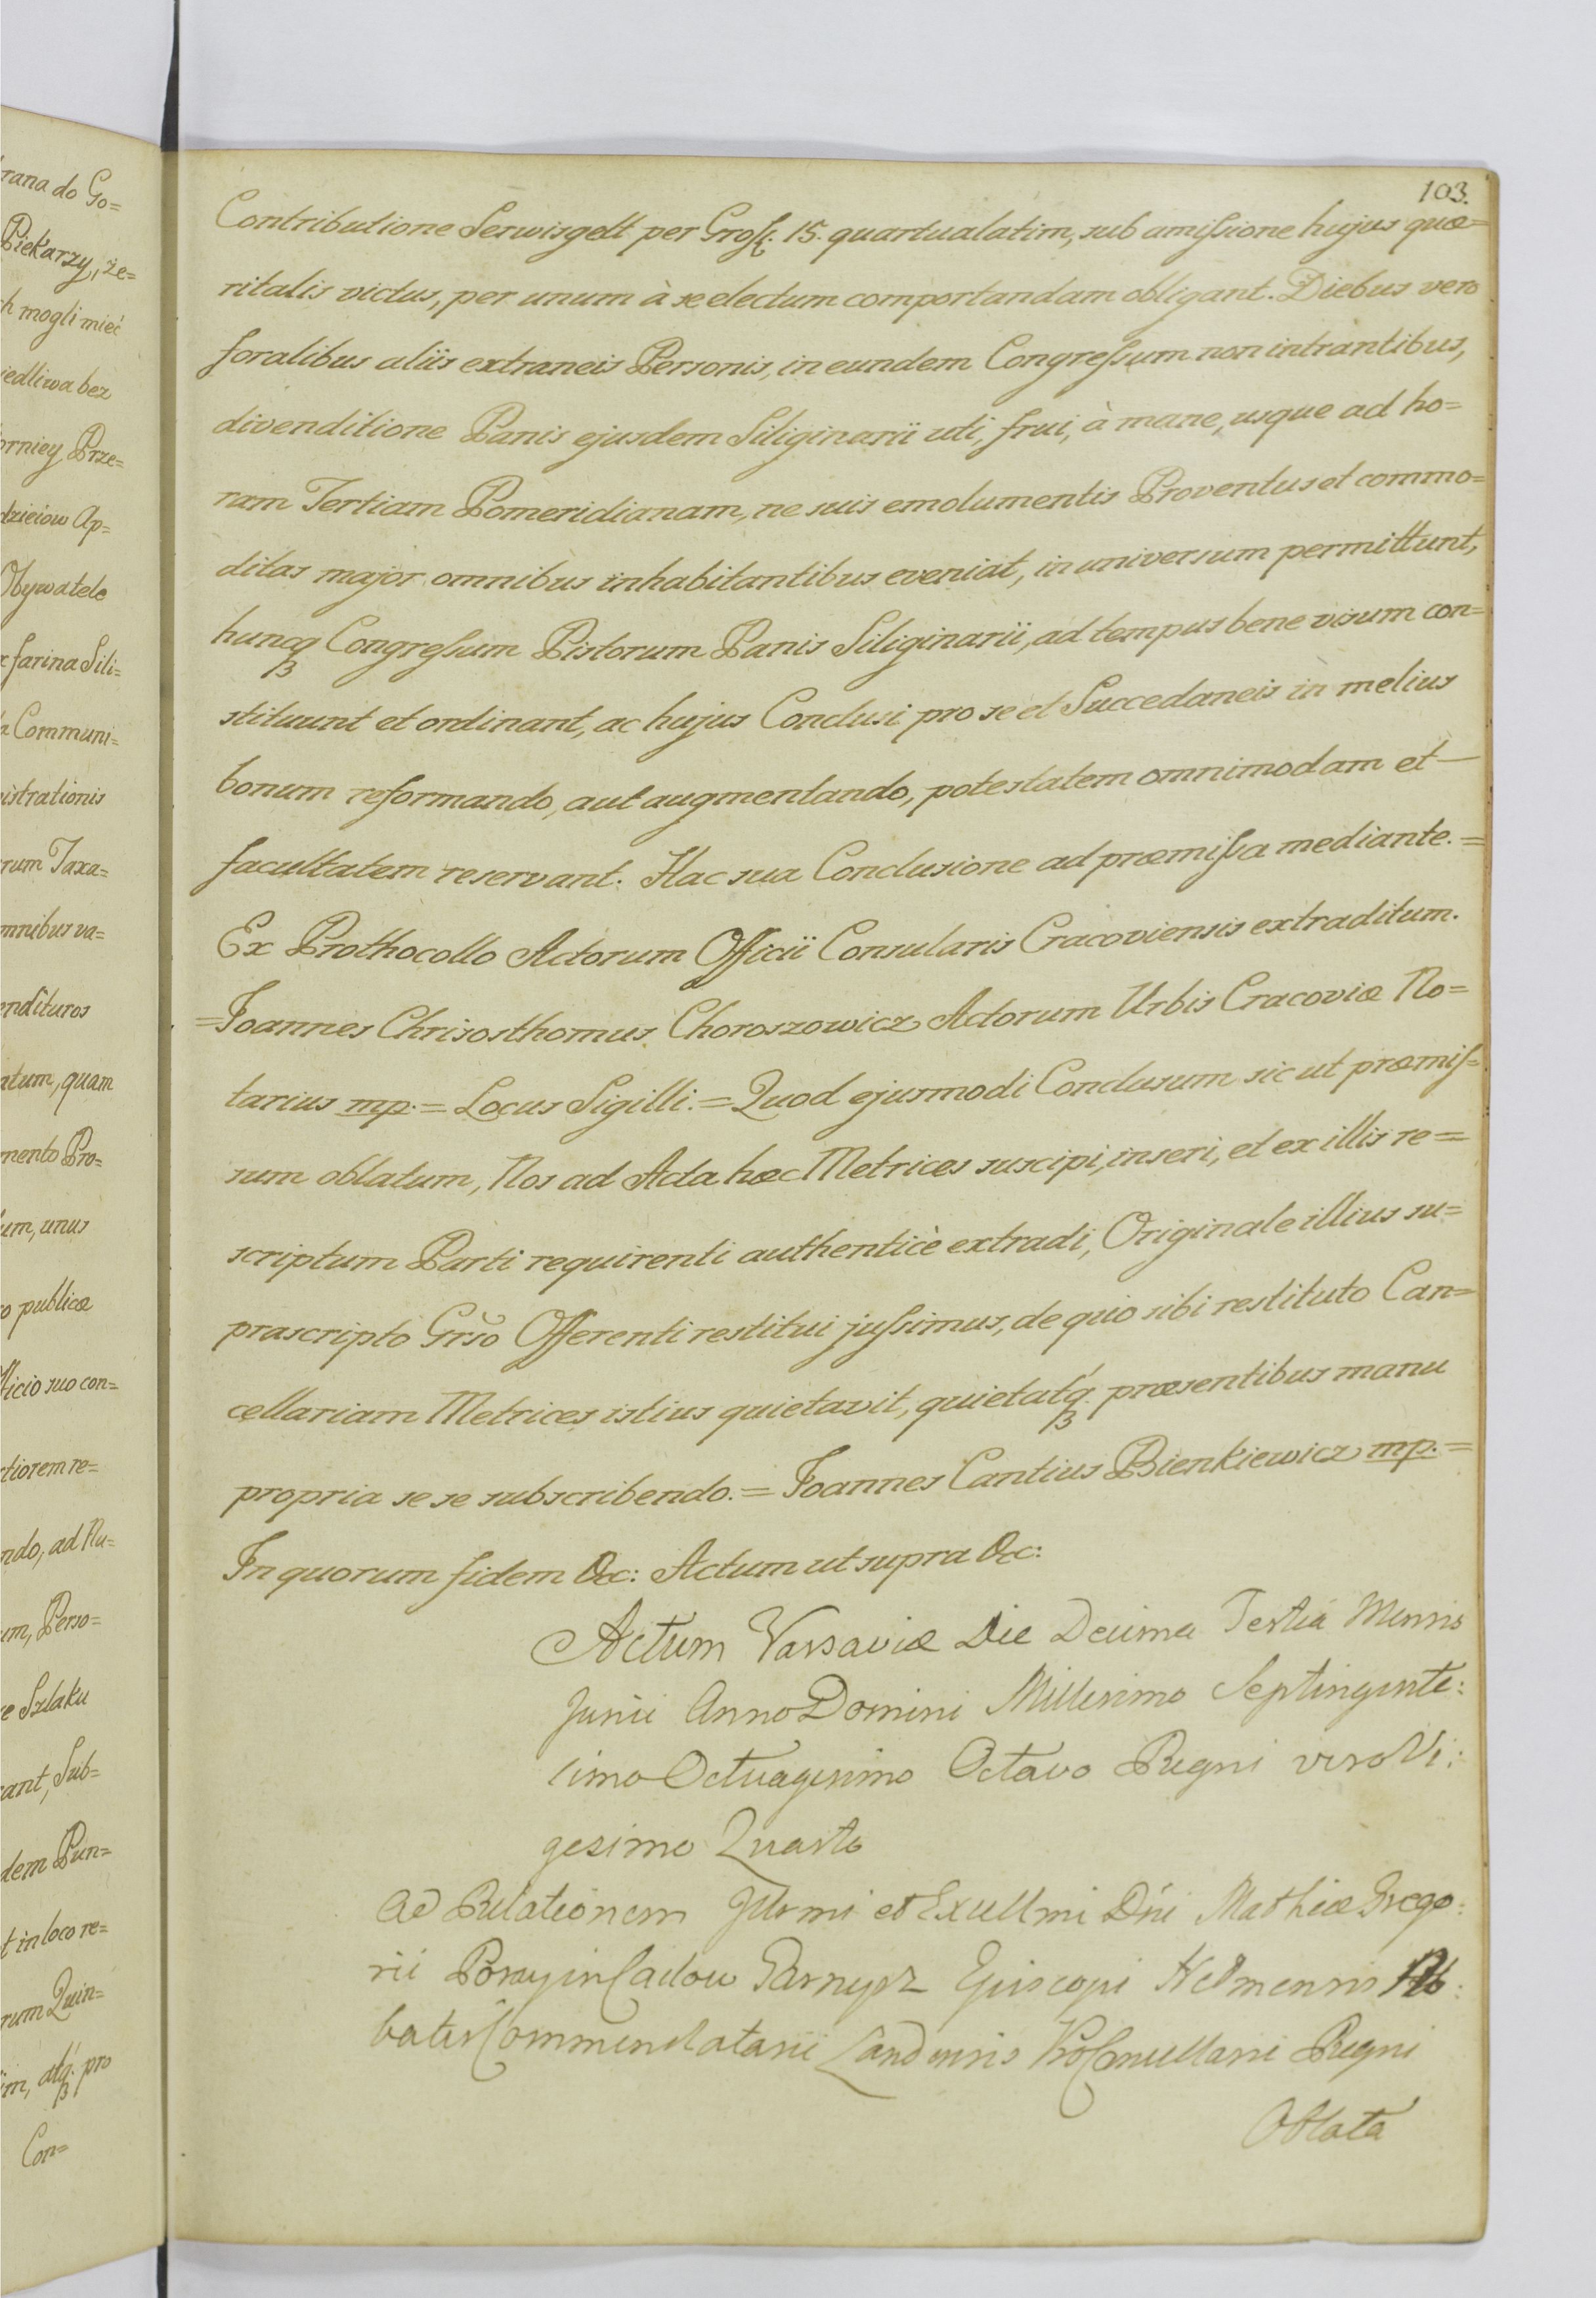 rana do Go=
Piekarzy, że=
h mogli mieć
iedliwa bez
orniey Prze=
dzieiow Ap=
Obywatele
x farina Sili=
a Communi=
istrationis
rum Taxa=
mnibus va=
endituros
atum, quam
mento Pro=
um, unus
o publicæ
fficio suo con=
tiorem re=
ndo, ad Nu=
um, Perso=
e Szlaku
cant, Sub=
dem Pun=
t in loco re=
rum Quin=
im, atq. pro
Con=
103.
Contributione Serwisgelt per Groſſ. 15. quartualatim, sub amiſsione hujus quæ=
ritalis victus, per unum à se electum comportandam obligant. Diebus vero
foralibus aliis extraneis Personis, in eundem Congreſsum non intrantibus,
divenditione Panis ejusdem Siliginarii uti, frui, à mane, usque ad ho=
ram Tertiam Pomeridianam, ne suis emolumentis Proventus et commo=
ditas major omnibus inhabitantibus eveniat, in universum permittunt,
huncq Congreſsum Pistorum Panis Siliginarii, ad tempus bene visum con=
stituunt et ordinant, ac hujus Conclusi pro se et Succedaneis in melius
bonum reformando, aut augmentando, potestatem omnimodam et —
facultatem reservant. Hac sua Conclusione ad præmiſsa mediante. =
Ex Prothocollo Actorum Officii Consularis Cracoviensis extraditum.
= Joannes Chrisosthomus Choroszowicz Actorum Urbis Cracoviæ No=
tarius mp. = Locus Sigilli. = Quod ejusmodi Conclusum sic ut præmiſ=
sum oblatum, Nos ad Acta hæc Metrices suscipi, inseri, et ex illis re=
scriptum Parti requirenti authenticè extradi, Originale illius su=
prascripto Grso Offerenti restitui juſsimus, de quo sibi restituto Can=
cellariam Metrices istius quietavit, quietatq. præsentibus manu
propria se se subscribendo. = Joannes Cantius Bienkiewicz mp. =
In quorum fidem &c: Actum ut supra &c:
Actum Varsaviæ Die Decima Tertia Mensis
Junii Anno Domini Millesimo Septingente:
simo Octuagesimo Octavo Regni vero Vi:
gesimo Quarto
Ad Relationem Illrmi et Excellmi Dni Mathiæ Grego:
rii Poray in Garnysz Episcopi Helmensis Ab:
batis Commendatarii Landensis ProCancellarii Regni
Oblata